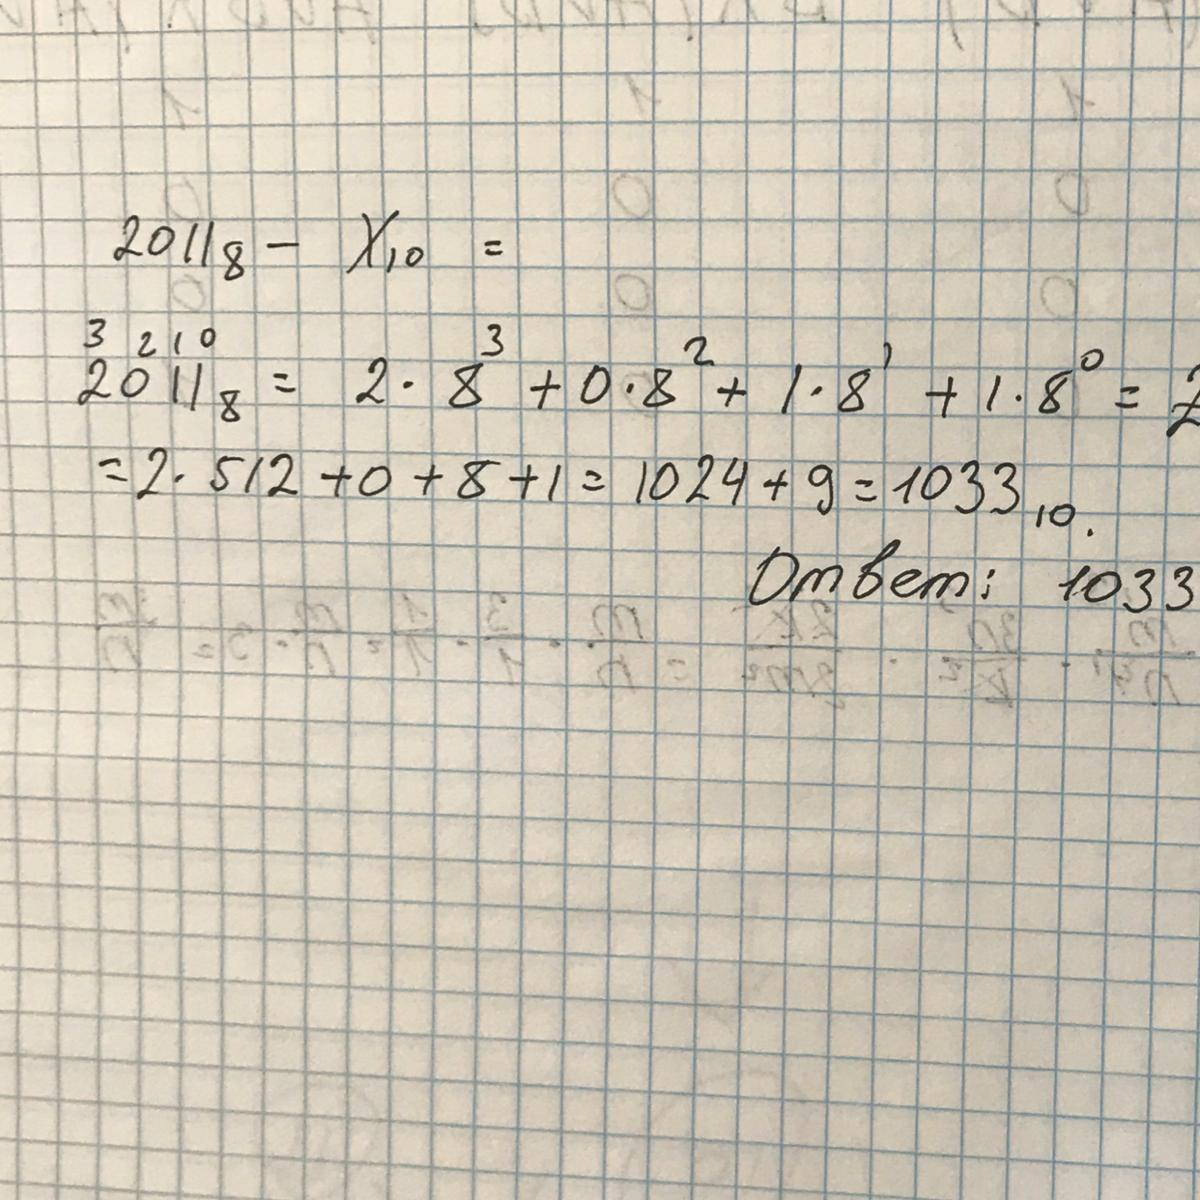 2011₈ - X₁₀ =
3 2 1 0
2011₈ = 2·8³+0·8²+1·8¹+1·8⁰=
=2·512+0+8+1=1024+9=1033₁₀.
Ответ: 1033